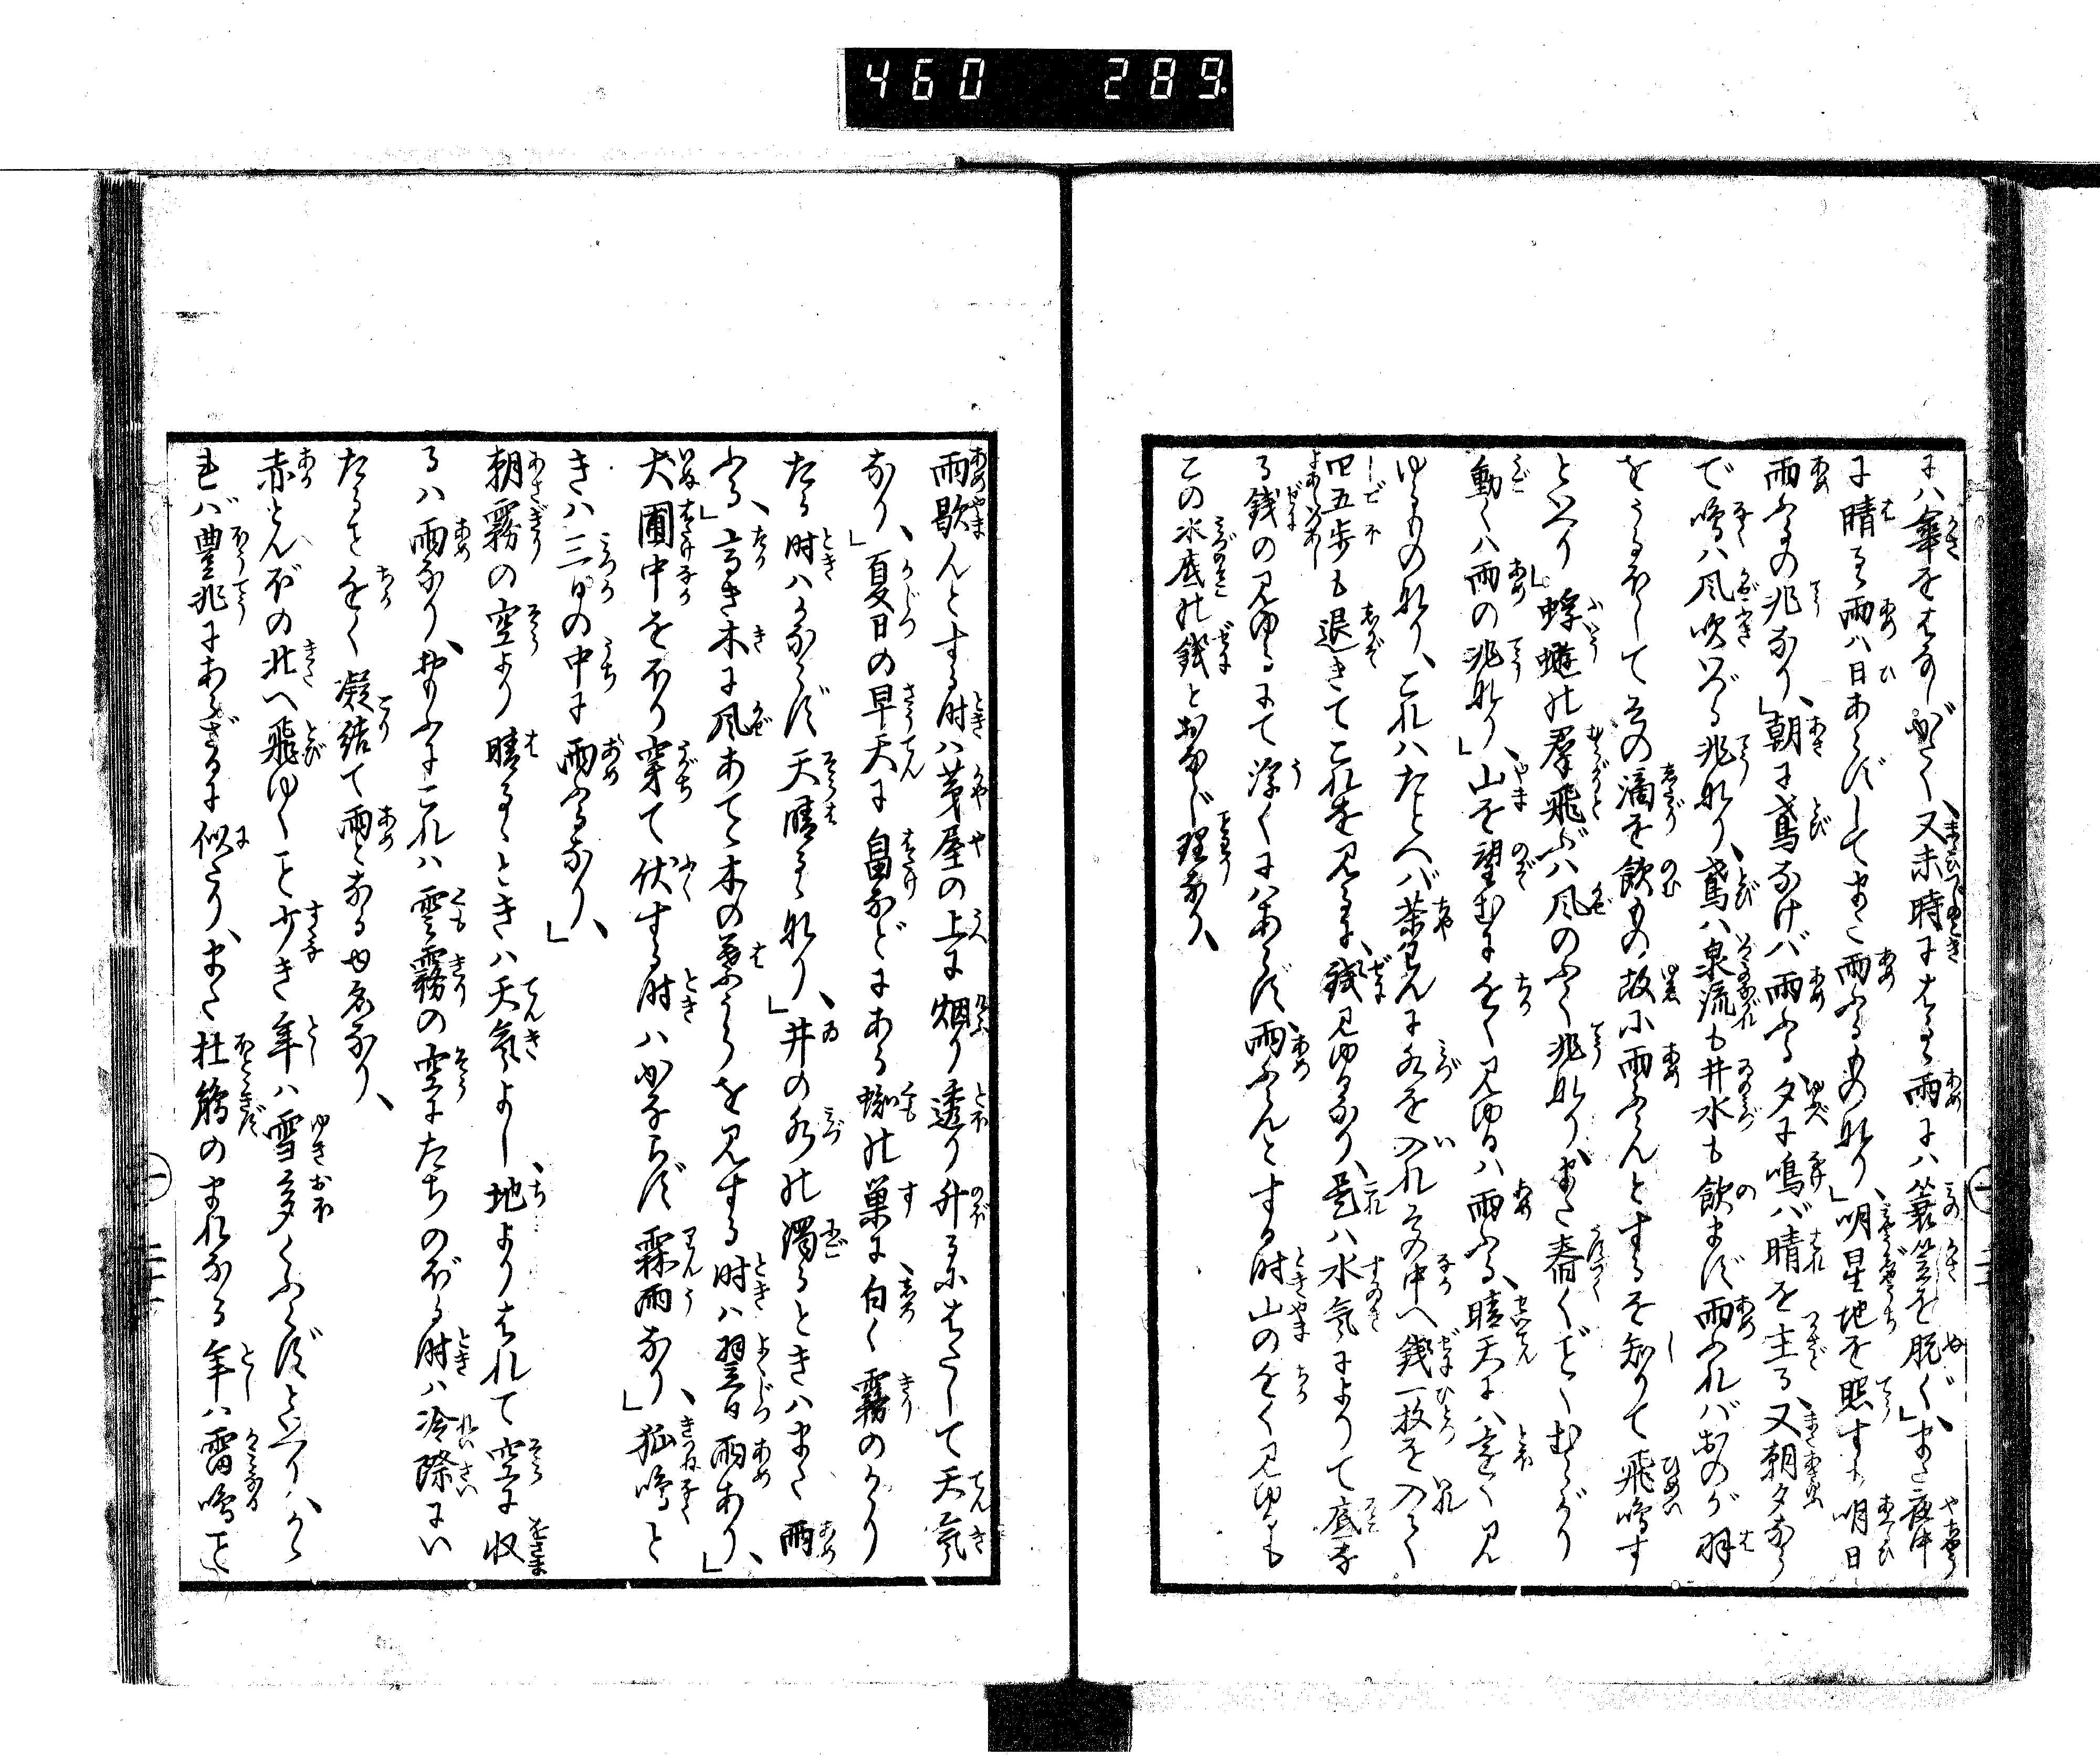 460 289
に八傘をはなしがたく、又未時にはるゝ雨には簑笠を脱ぐ」、また夜中
に晴るゝ雨ハ日あらずしてまた雨ふるもの也り」、明星地を照すハ明日
雨ふるの兆なり」、朝に鳶なけバ雨ふる、夕に鳴バ晴を主る、又朝夕なら
で鳴ハ風吹いづる兆也り、鳶ハ泉流も井水も飲まず雨ふれバおのが羽
をうるほしてその滴を飲もの、故に雨ふらんとするを知りて飛鳴す
といへり」蜉蝣の群飛ぶハ風のふく兆也り、また舂くごとくむらがり
動くハ雨の兆也り」、山を望むに近く見ゆるハ雨ふる、晴天にハ遠く見
ゆるもの也り、これハたとへバ茶わんに水を入れその中へ銭一枚を入て
四五歩も退きてこれを見るに、銭見ゆるなり、是ハ水気によりて底な
る銭の見ゆるにて浮くにハあらず、雨ふらんとする時山の近く見ゆるも
この水底の銭とおなじ理なり、
雨歇んとする時ハ茅屋の上に烟り透り升るにはたして天気
なり」、夏日の早天に畠などにある蜘の巣に白く霧のかゝり
たる時ハかならず天晴るゝ也り」、井の水の濁るときハまた雨
ふる」、高き木に風あてゝ木の葉うらを見する時ハ翌日雨あり」、
犬圃中をほり穿て伏する時ハかならず霖雨なり」、狐鳴と
きハ三日の中に雨ふるなり」、
朝霧の空より晴るゝときハ天気よし、地よりはれて空に収
るハ雨なり、按ふにこれハ雲霧の空にたちのぼる時ハ冷際にい
たること近く凝結て雨となるゆゑなり、
赤とんぼの北へ飛ゆくこと少き年ハ雪多くふらずといへり、かゝ
れバ豊兆にあらざるに似たり、また杜鵑のまれなる年ハ雷鳴こと